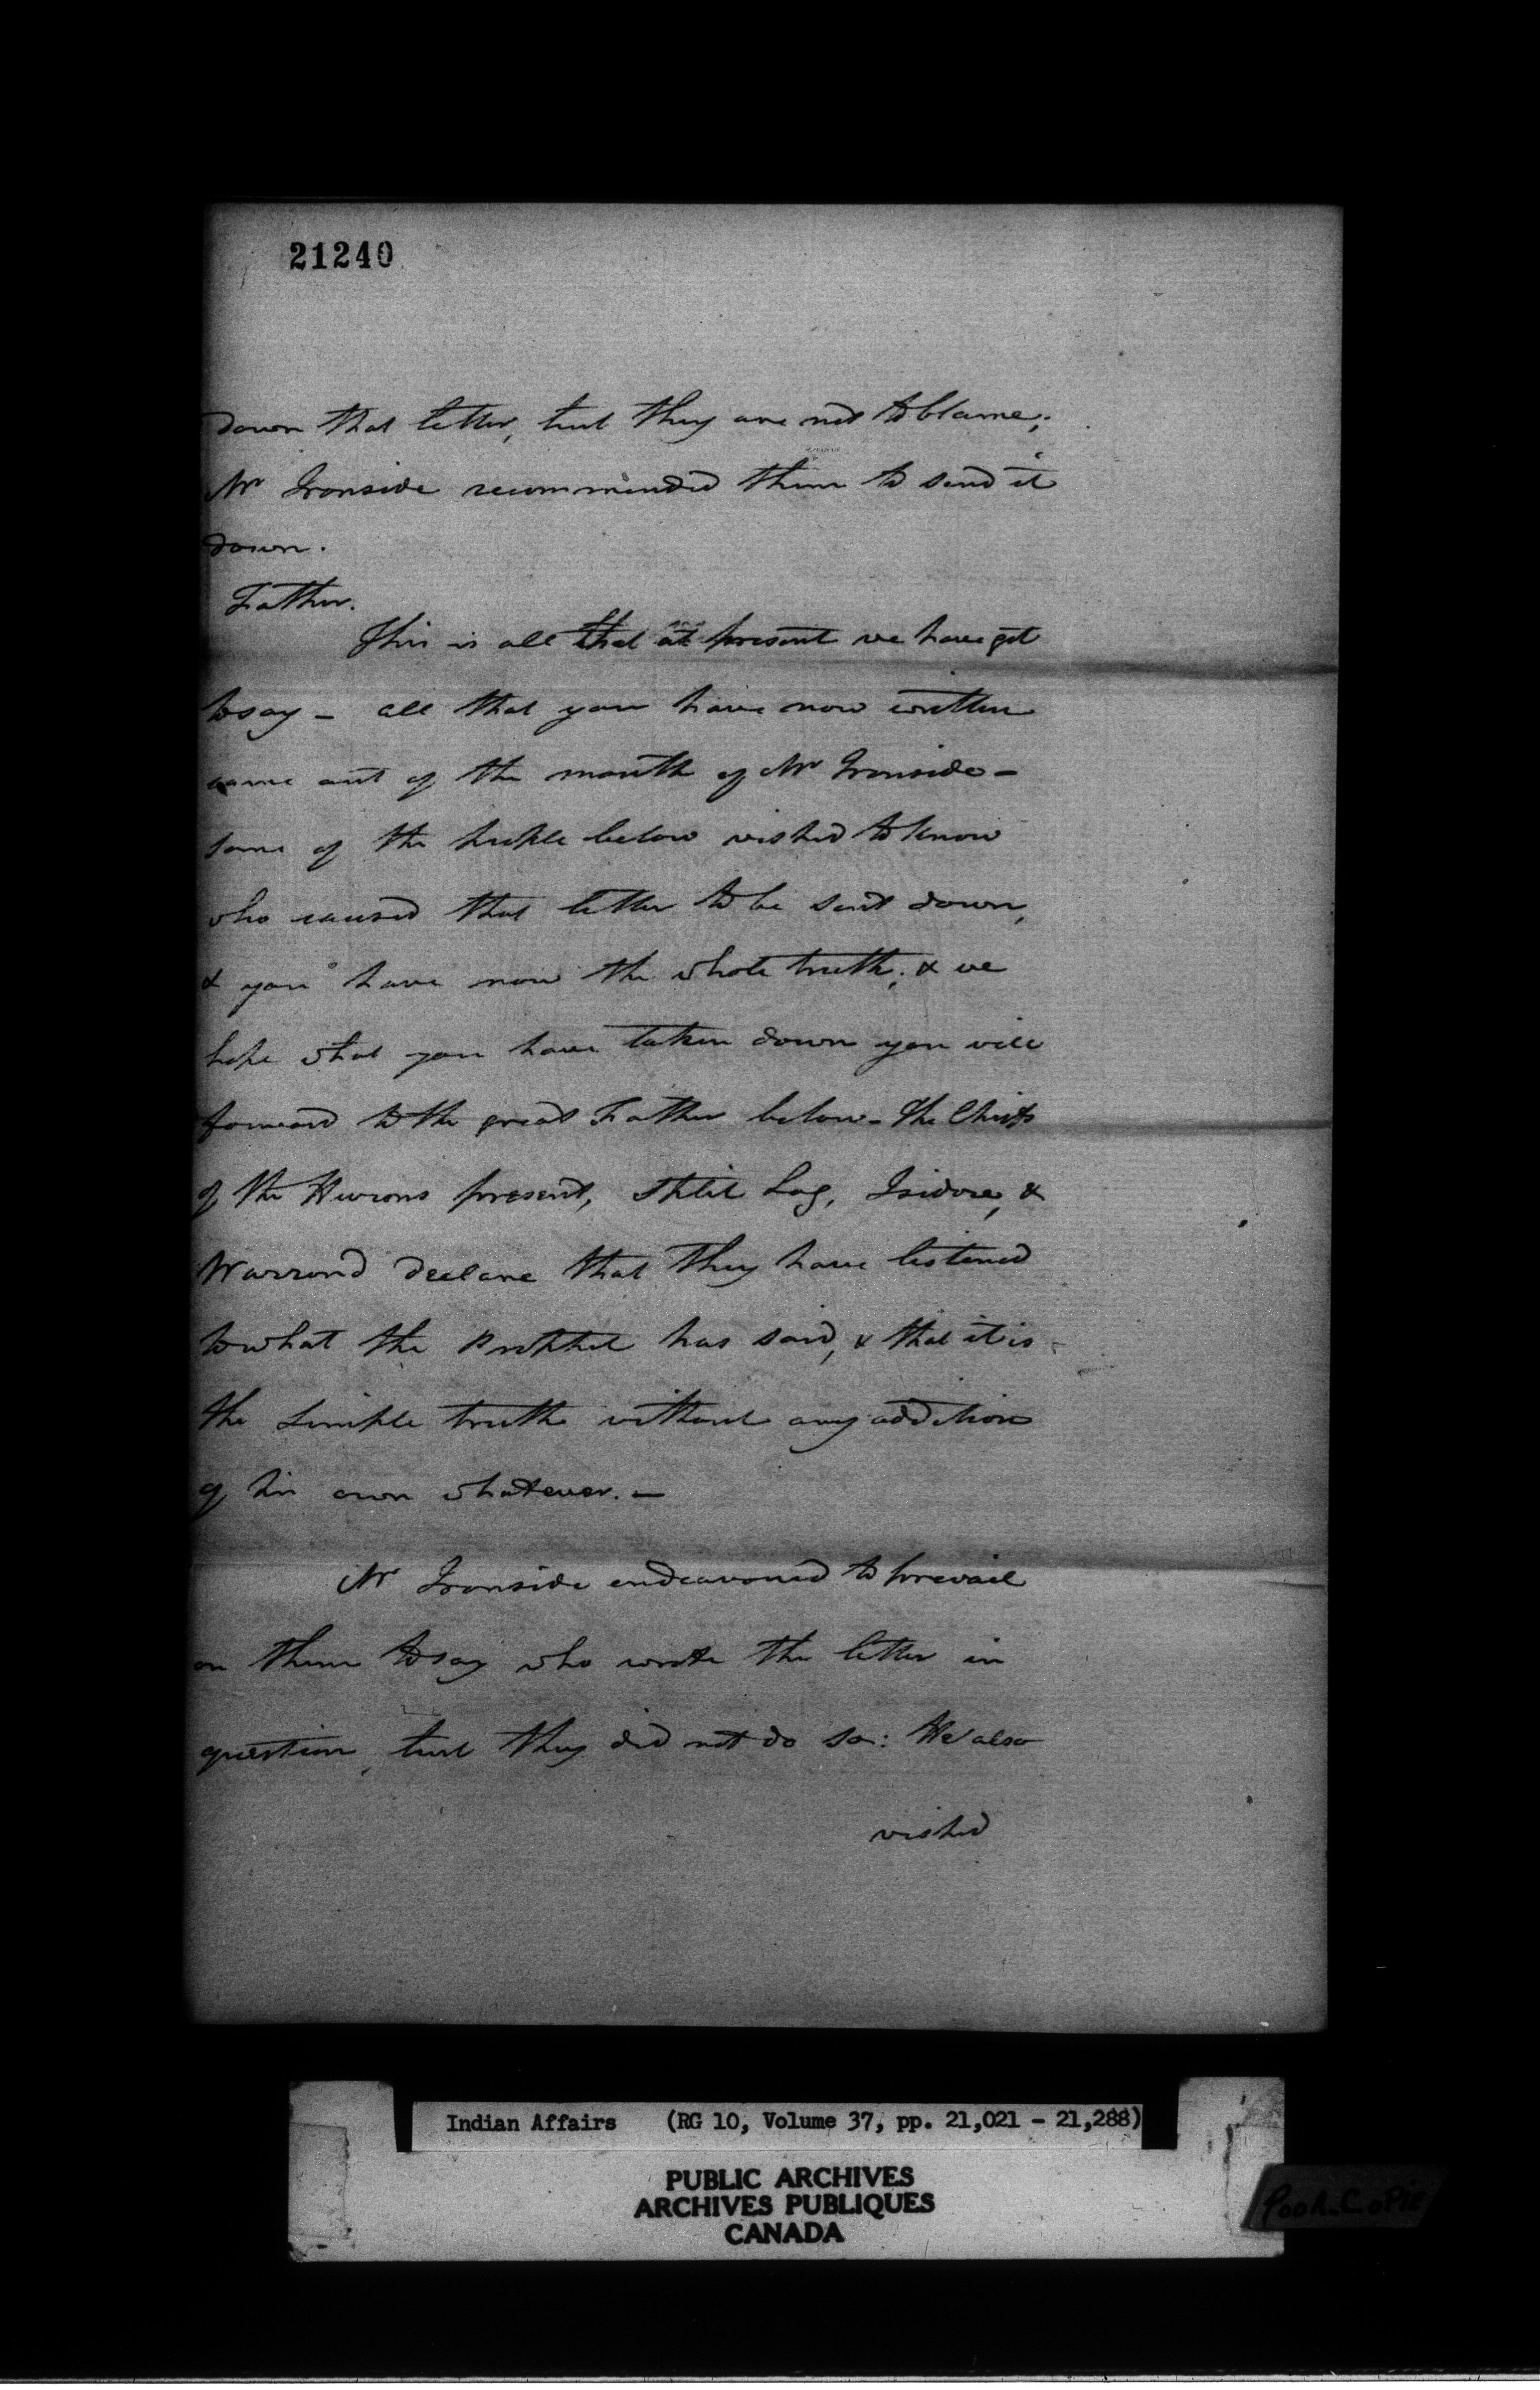 21240
down that letter, but they are not to blame;
Mr Ironside recommended them to send it
down.
Father.
This is all that at present we have got
to say - all that you have now written
came out of the mouth of Mr Ironside -
some of the people below wished to know
who caused that letter to be sent down,
& you have now the whole truth; & we
hope what you have taken down you will
forward to the great Father below - The Chiefs
of the Hurons present, Split Log, Isidore, &
Warrond declare that they have listened
to what the Prophet has said, & that it is
the simple truth without any addition
of his own whatever. -
Mr Ironside endeavoured to prevail
on them to say who wrote the letter in
question, but they did not do so: He also
wished
Indian Affairs (RG 10, Volume 37, pp. 21,021 - 21,288)
PUBLIC ARCHIVES
ARCHIVES PUBLIQUES
CANADA
Poor Copie